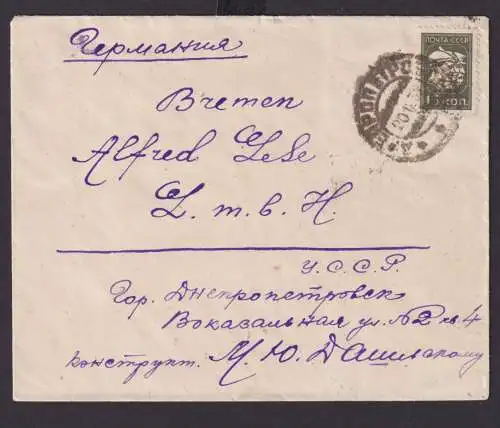 Германия
ПОЧТА СССР
15 КОП.
Bremen
Alfred Lese
G. m. b. H.
У.С.С.Р.
Гор. Днепропетровск
Вокзальная ул. №2 кв. 4
конструкт. М. Ю. Дашевскому